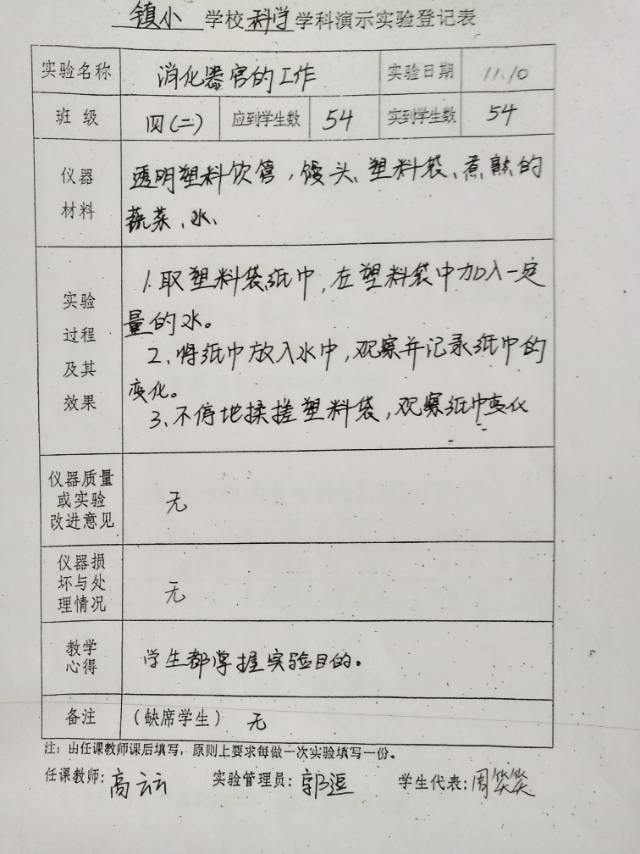 镇小 学校 科学 学科演示实验登记表
实验名称 消化器官的工作 实验日期 11.10
班级 四(二) 应到学生数 54 实到学生数 54
仪器材料 透明塑料饮管,馒头、塑料袋、煮熟的
蔬菜、水、
实验过程及其效果 1.取塑料袋纸巾,在塑料袋中加入一定
量的水。
2、将纸巾放入水中,观察并记录纸巾的
变化。
3、不停地揉搓塑料袋,观察纸巾变化
仪器质量或实验改进意见 无
仪器损坏与处理情况 无
教学心得 学生都掌握实验目的。
备注 (缺席学生) 无
注:由任课教师课后填写,原则上要求每做一次实验填写一份。
任课教师:高云 实验管理员:郭逗 学生代表:周笑笑